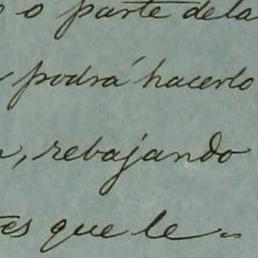 o parte dela
podrá hacerlo
, rebajando
tes que le=